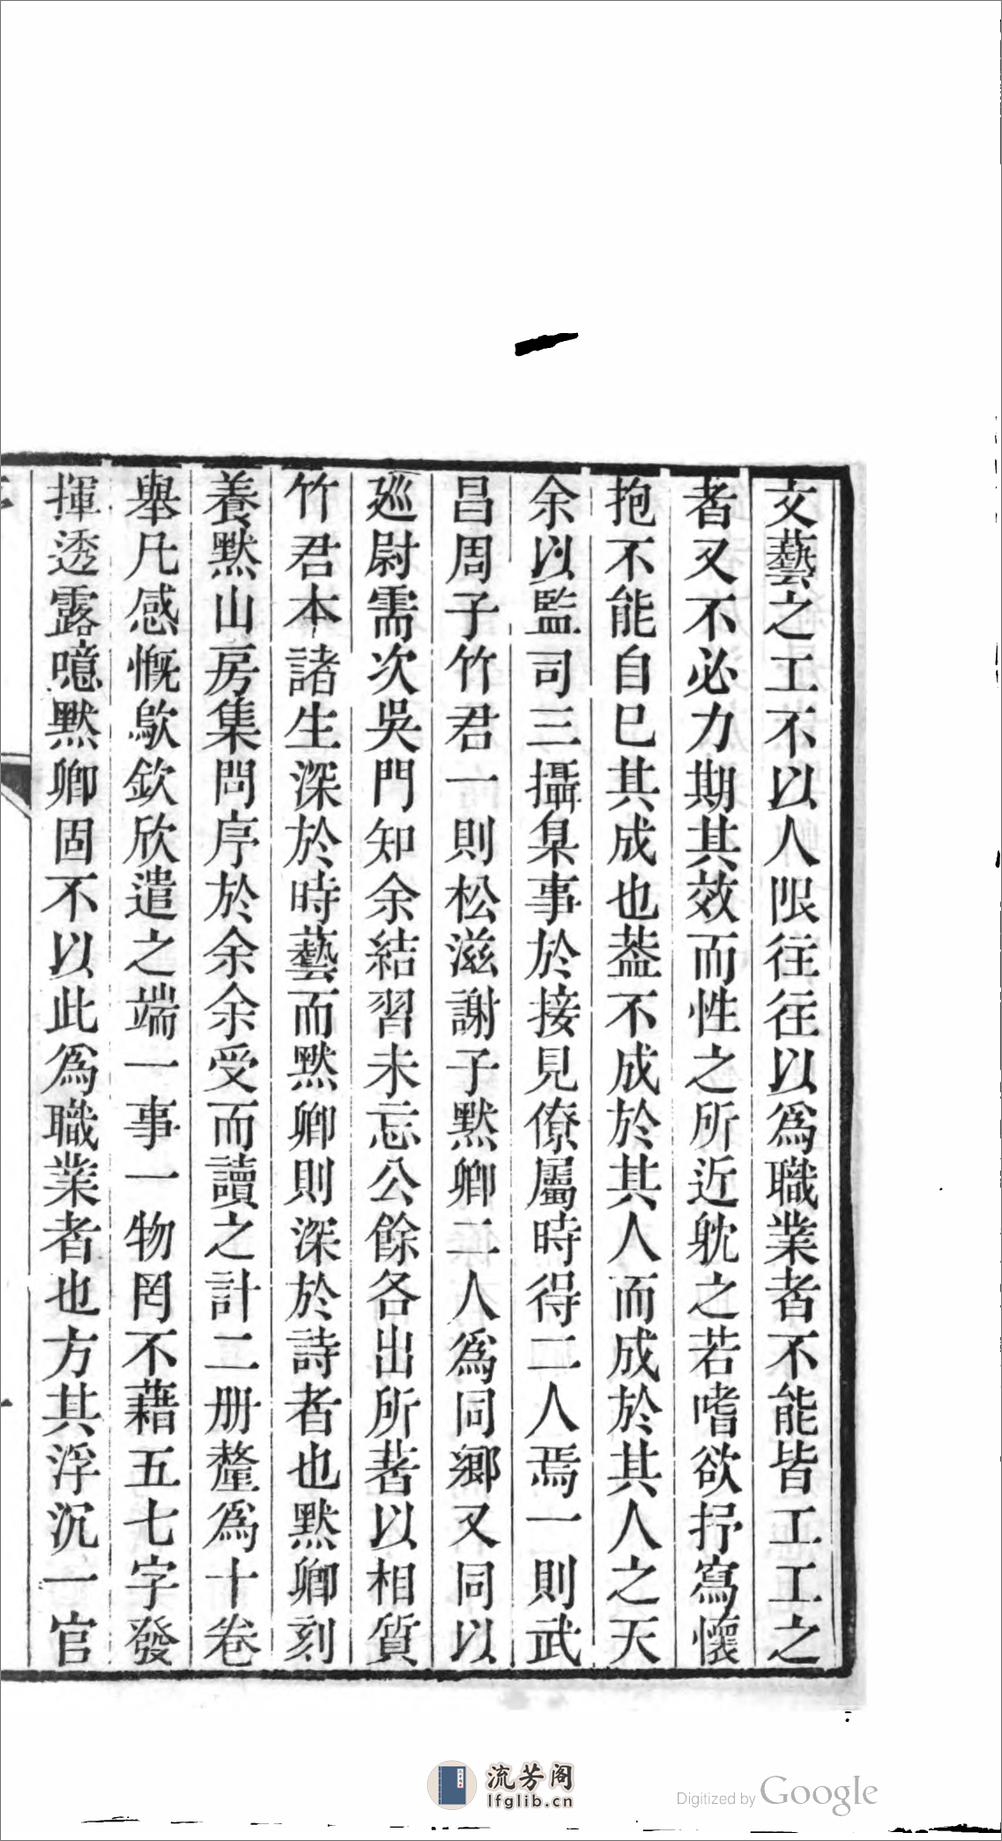 文藝之工不以人限往往以爲職業者不能皆工工之
者又不必力期其效而性之所近躭之若嗜欲抒寫懷
抱不能自巳其成也葢不成於其人而成於其人之天
余以監司三攝臬事於接見僚屬時得二人焉一則武
昌周子竹君一則松滋謝子默卿二人爲同鄉又同以
廵尉需次吳門知余結習未忘公餘各出所著以相質
竹君本諸生深於時藝而默卿則深於詩者也默卿刻
養默山房集問序於余余受而讀之計二册釐爲十卷
舉凡感慨歔欷欣遣之端一事一物罔不藉五七字發
揮透露噫默卿固不以此爲職業者也方其浮沉一官
流芳阁
lfglib.cn
Digitized by Google